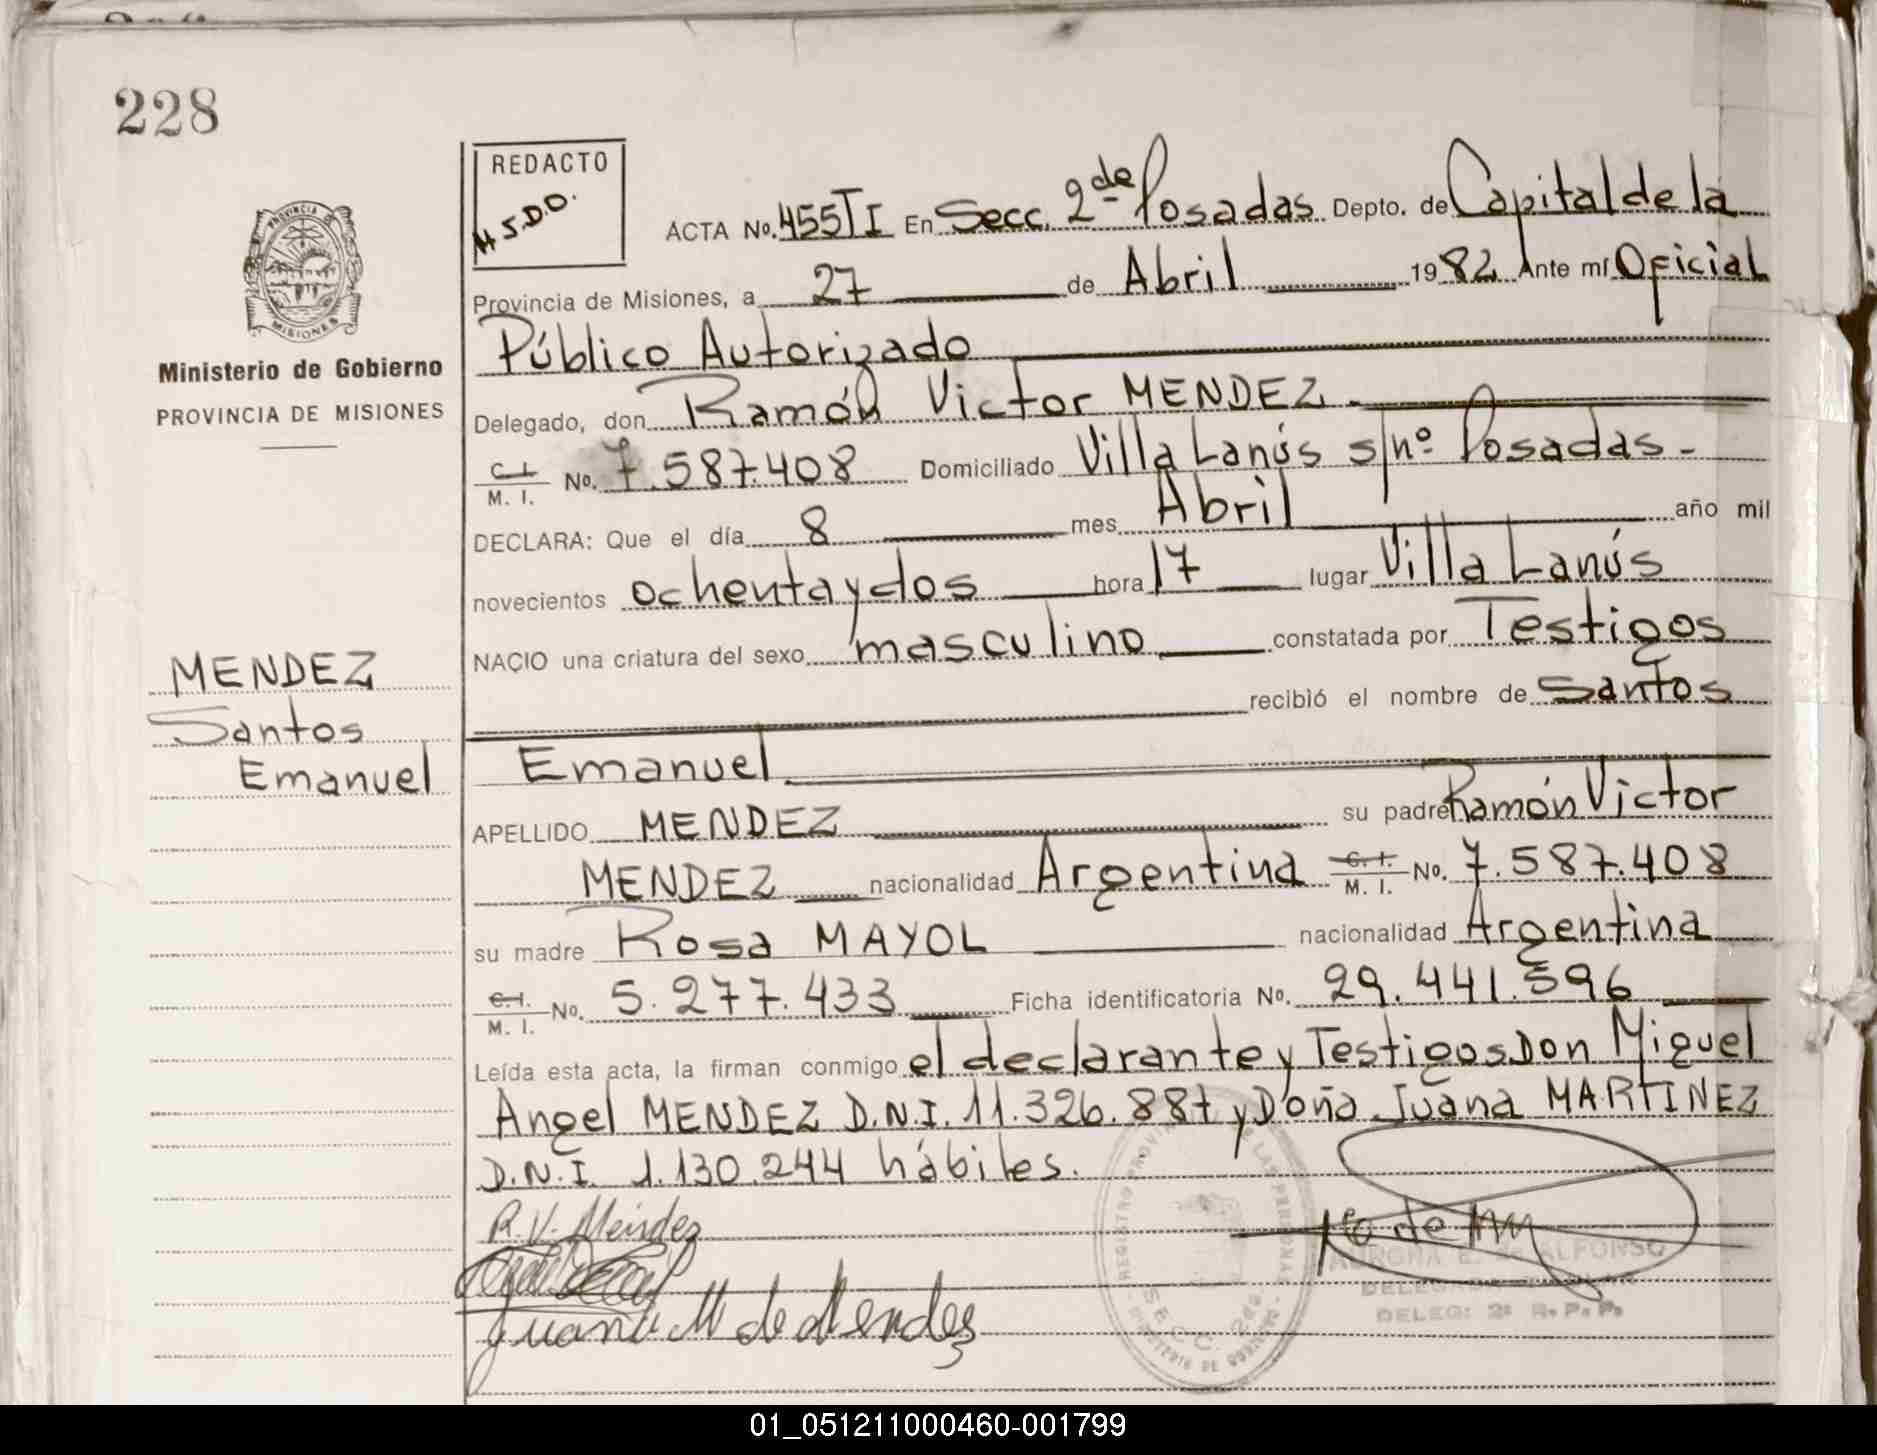 228
REDACTO
M.S.D.O.
ACTA No. 455 TI En Secc. 2da de Posadas Depto. de Capital de la
Provincia de Misiones, a 27 de Abril 1982 Ante mí Oficial
Público Autorizado
Delegado, don Ramón Victor MENDEZ
C. I. M. I. No. 7.587.408 Domiciliado Villa Lanús s/nº Posadas-
DECLARA: Que el día 8 mes Abril año mil
novecientos ochenta y dos hora 17 lugar Villa Lanús
NACIO una criatura del sexo masculino constatada por Testigos
recibió el nombre de Santos
Emanuel
APELLIDO MENDEZ su padre Ramón Victor
MENDEZ nacionalidad Argentina C. I. M. I. No. 7.587.408
su madre Rosa MAYOL nacionalidad Argentina
C. I. M. I. No. 5.277.433 Ficha identificatoria No. 29.441.596
Leída esta acta, la firman conmigo el declarante y Testigos Don Miguel
Angel MENDEZ D.N.I. 11.326.887 y Doña Juana MARTINEZ
D.N.I. 1.130.244 hábiles.
R. V. Mendez
Juana M de Mendez
PROVINCIA
MISIONES
Ministerio de Gobierno
PROVINCIA DE MISIONES
MENDEZ
Santos
Emanuel
REGISTRO PROVINCIAL DE LAS PERSONAS
SECC. 2da.
MINISTERIO DE GOBIERNO
E. de ALFONSO
DELEG: 2ª R.P.P.
01_051211000460-001799